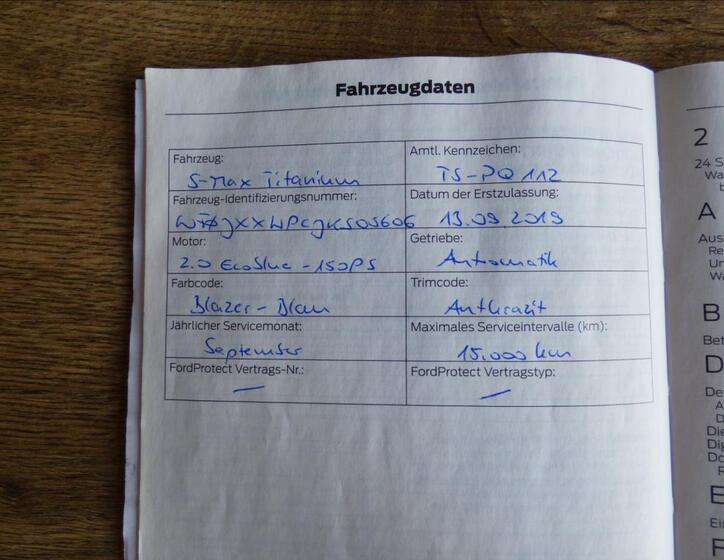 Fahrzeugdaten
Fahrzeug: Amtl. Kennzeichen:
S-Max Titanium TS-PQ 112
Fahrzeug-Identifizierungsnummer: Datum der Erstzulassung:
13.09.2019
Motor: Getriebe:
2.0 EcoBlue - 150PS Automatik
Farbcode: Trimcode:
Blazer-Blau Anthrazit
Jährlicher Servicemonat: Maximales Serviceintervalle (km):
September 15.000 km
FordProtect Vertrags-Nr.: FordProtect Vertragstyp:
— —
2
24 S
Wa
A
Aus
Re
Ur
Wa
B
Bet
D
De
A
D
Die
Dig
Do
R
E
Ei